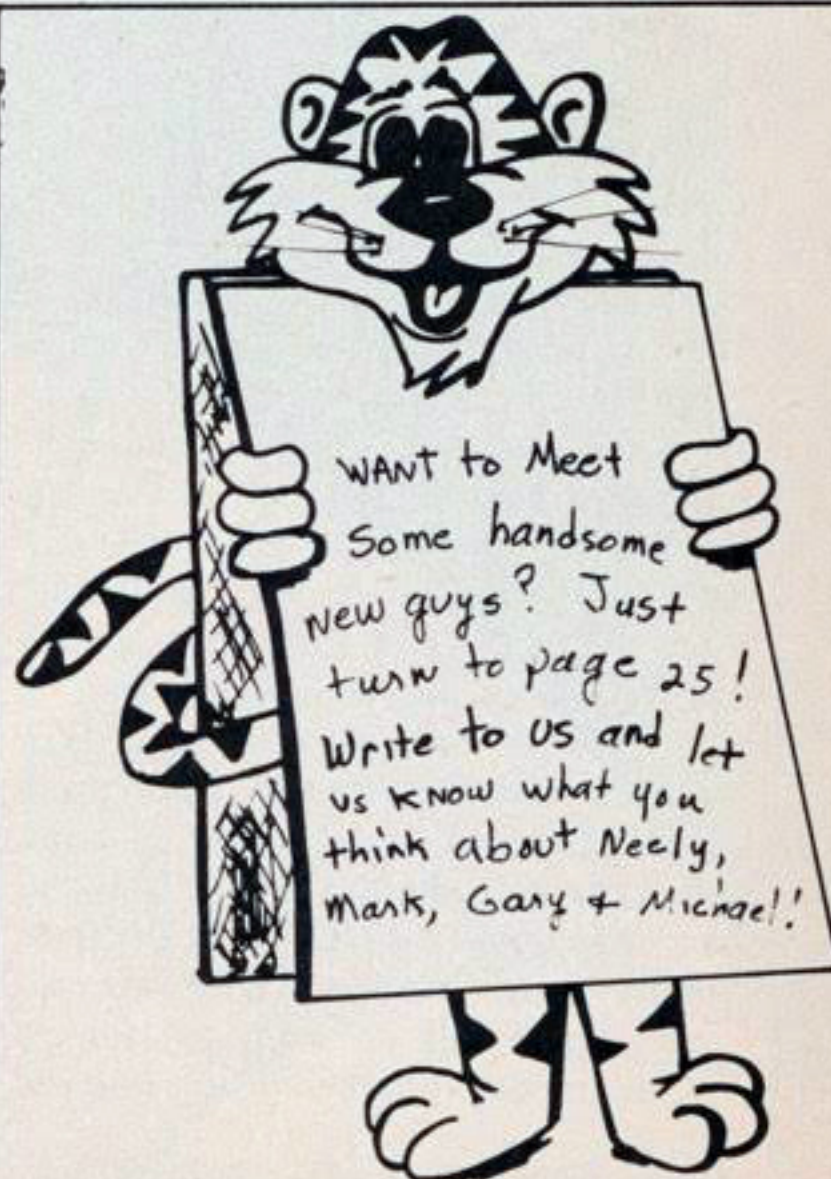 WANT to Meet
Some handsome
New guys? Just
turn to page 25!
Write to us and let
us know what you
think about Neely,
Mark, Gary + Michael!